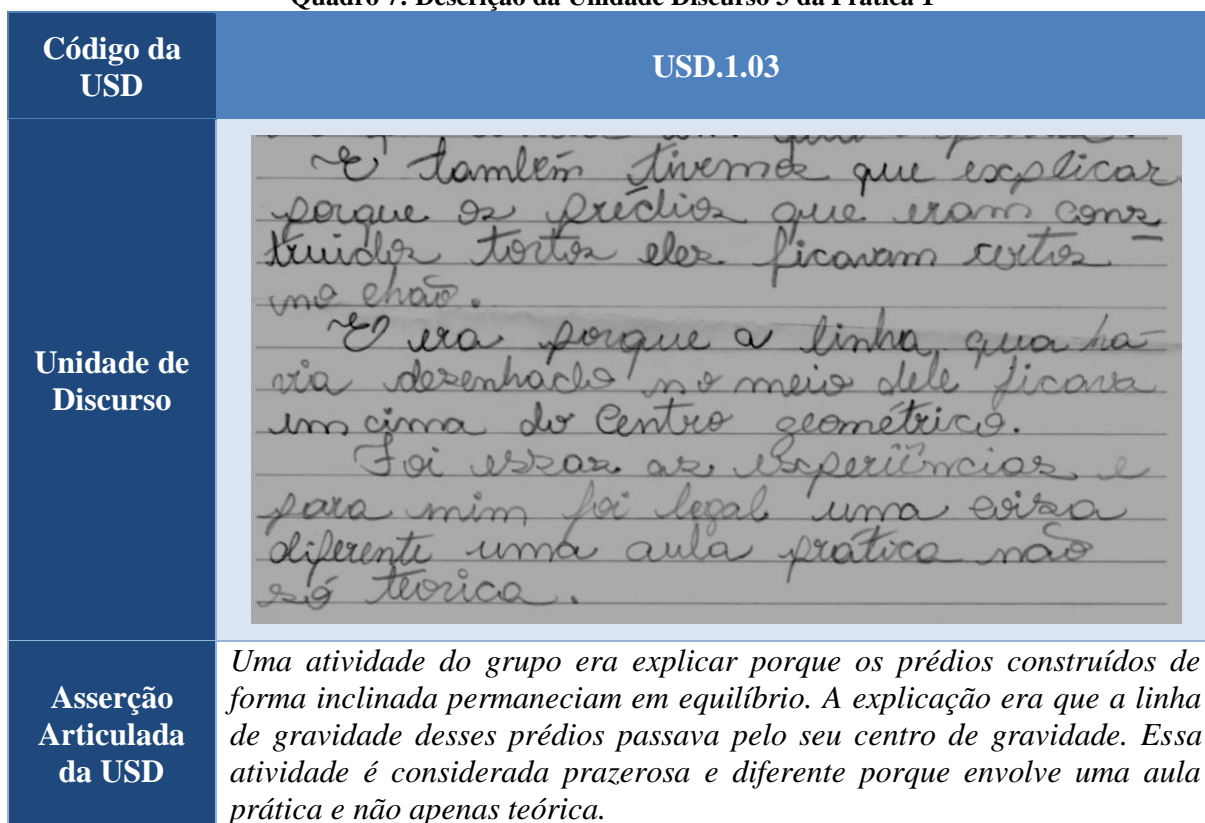 Quadro 7: Descrição da Unidade Discurso 3 da Prática 1
Código da
USD
USD.1.03
Unidade de
Discurso
E também tivemos que explicar
porque os prédios que eram cons
truidos tortos eles ficavam certos
no chão.
E era porque a linha, que ha-
via desenhado no meio dele ficava
em cima do Centro geométrico.
Foi essas as experiências e
para mim foi legal uma coisa
diferente uma aula prática não
só teorica.
Asserção
Articulada
da USD
Uma atividade do grupo era explicar porque os prédios construídos de
forma inclinada permaneciam em equilíbrio. A explicação era que a linha
de gravidade desses prédios passava pelo seu centro de gravidade. Essa
atividade é considerada prazerosa e diferente porque envolve uma aula
prática e não apenas teórica.